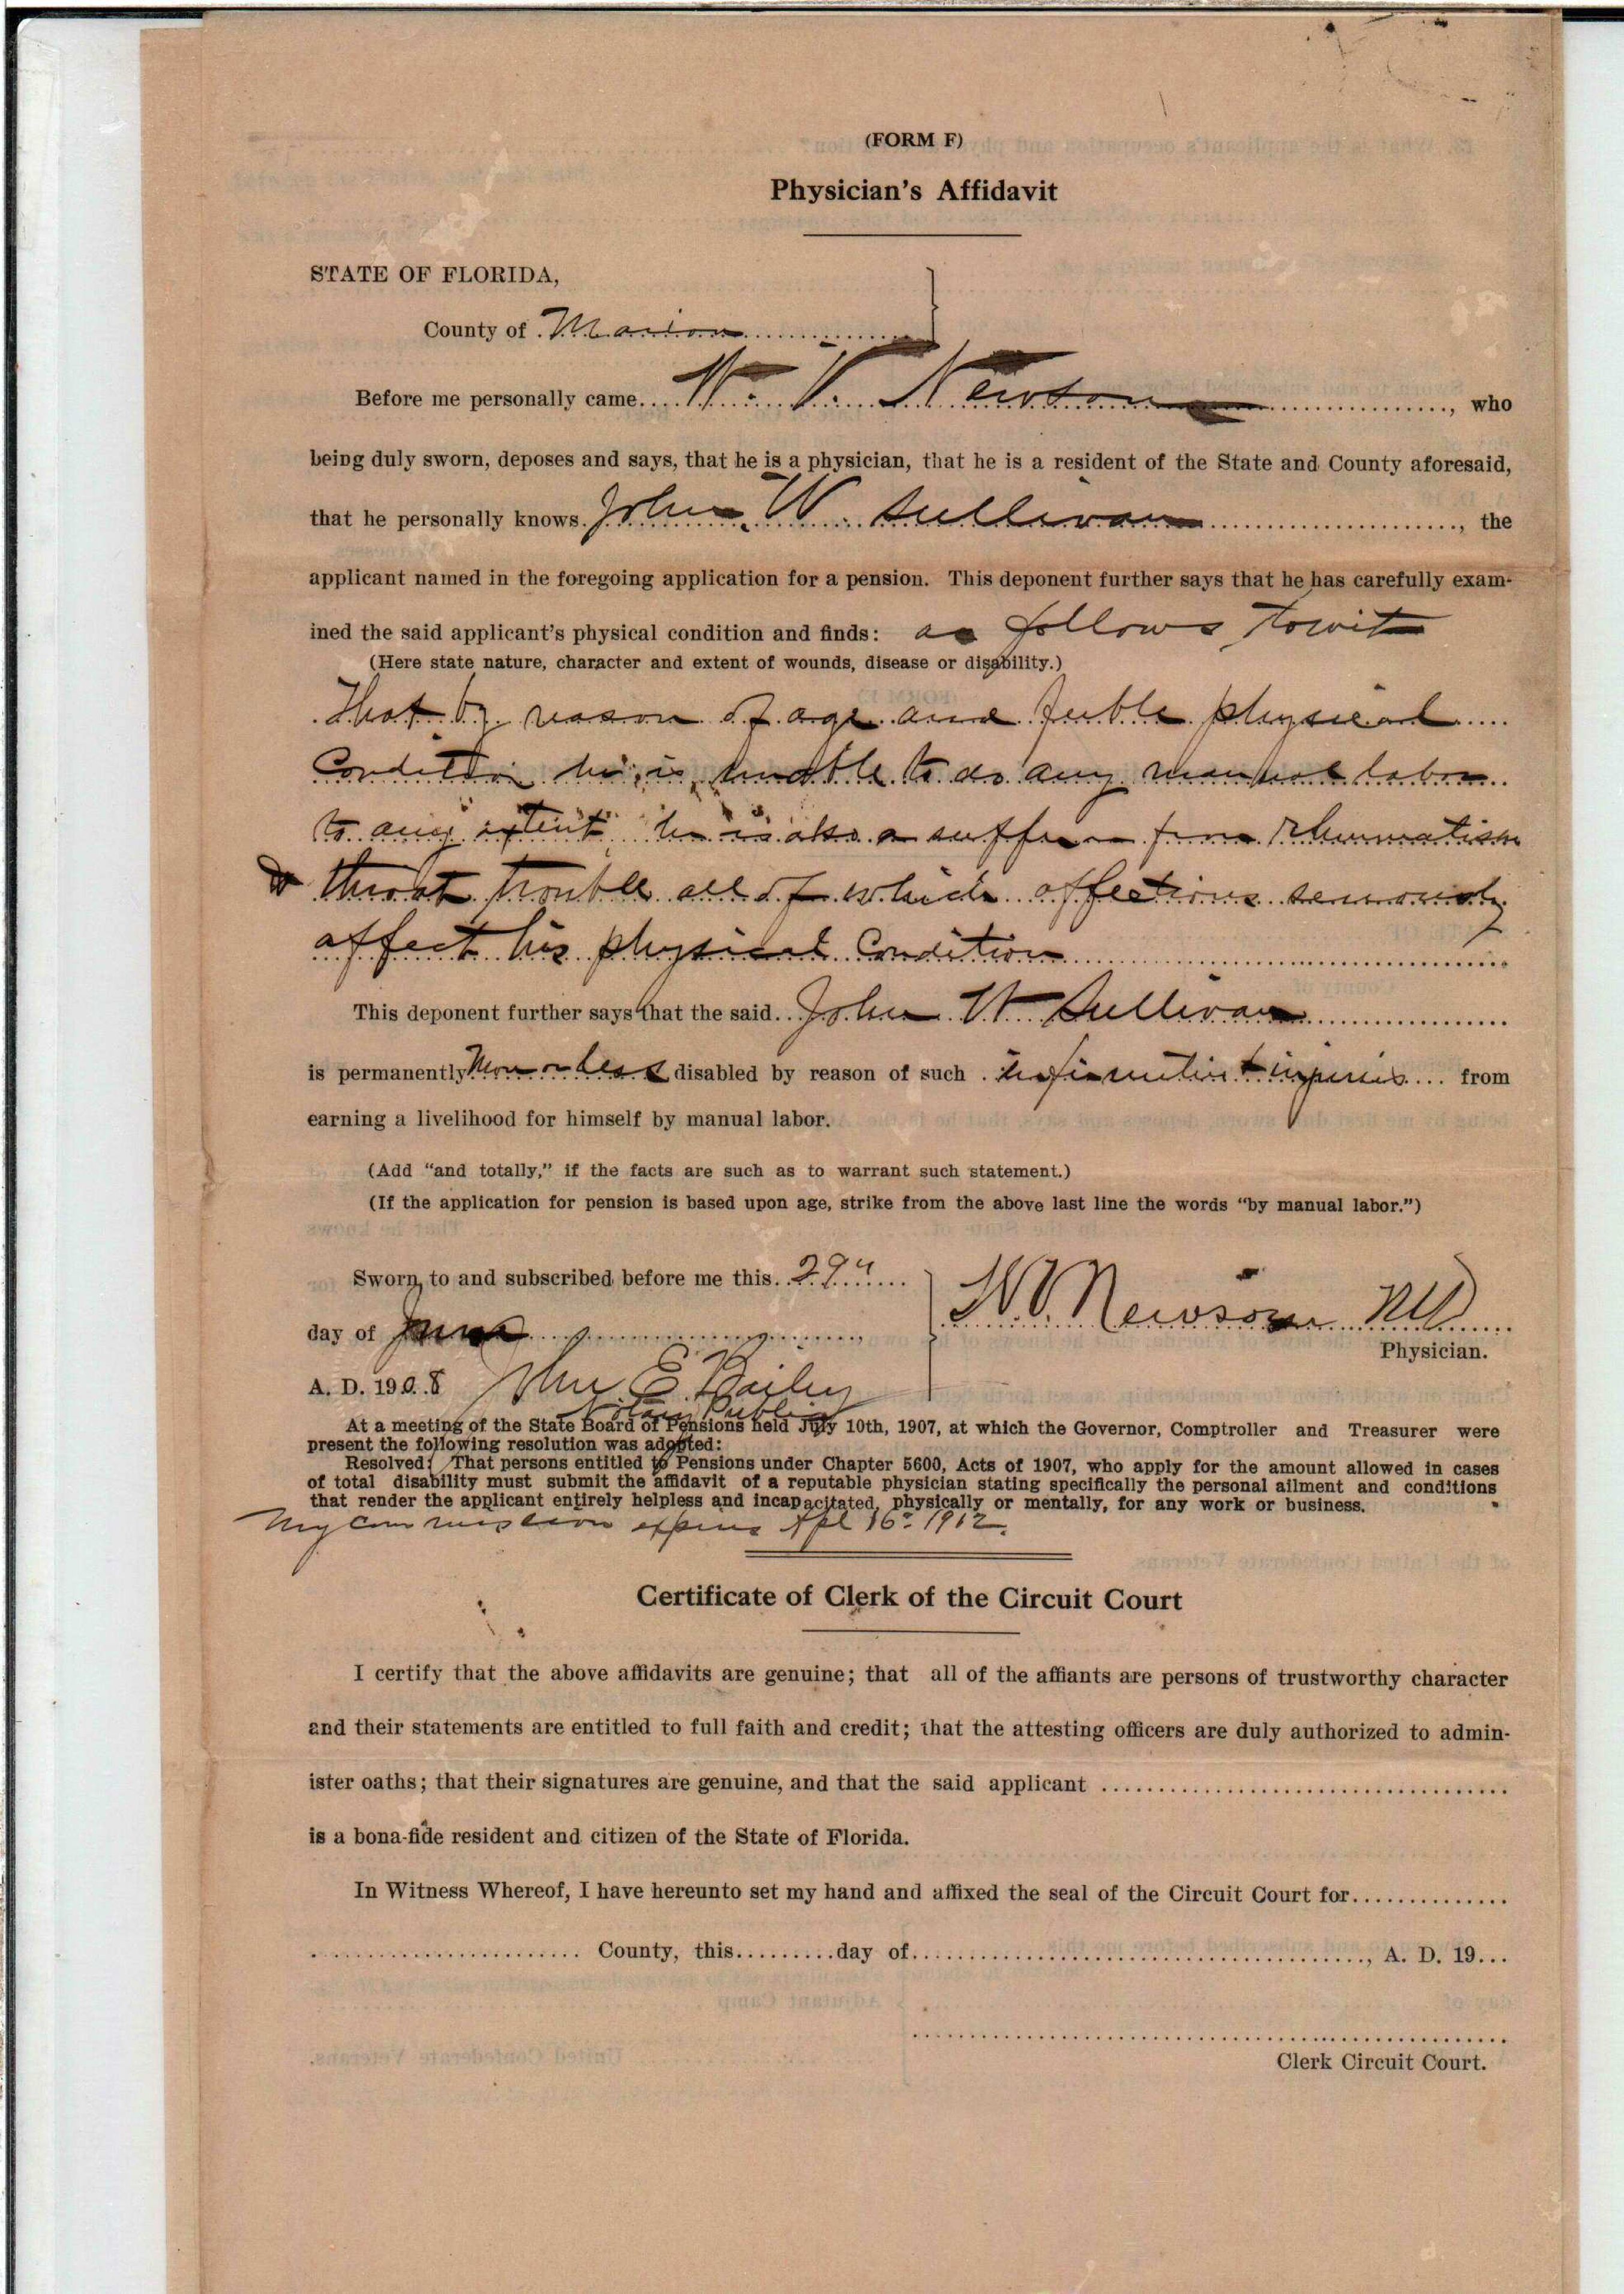 (FORM F)
Physician's Affidavit
STATE OF FLORIDA,
County of Marion
Before me personally came W. V. Newsom, who
being duly sworn, deposes and says, that he is a physician, that he is a resident of the State and County aforesaid,
that he personally knows John W. Sullivan, the
applicant named in the foregoing application for a pension. This deponent further says that he has carefully exam-
ined the said applicant's physical condition and finds: as follows towit
(Here state nature, character and extent of wounds, disease or disability.)
That by reason of age and feeble physical
Condition he is unable to do any manual labor
to any extent he is also a sufferer from rheumatism
& throat trouble all of which affections seriously
affect his physical Condition
This deponent further says that the said John W Sullivan
is permanently More or less disabled by reason of such infirmities & injuries from
earning a livelihood for himself by manual labor.
(Add "and totally," if the facts are such as to warrant such statement.)
(If the application for pension is based upon age, strike from the above last line the words "by manual labor.")
Sworn to and subscribed before me this 29"
day of June
W.V. Newsom MD
Physician.
A. D. 1908 Jno E. Bailey
Notary Public
At a meeting of the State Board of Pensions held July 10th, 1907, at which the Governor, Comptroller and Treasurer were
present the following resolution was adopted:
Resolved: That persons entitled to Pensions under Chapter 5600, Acts of 1907, who apply for the amount allowed in cases
of total disability must submit the affidavit of a reputable physician stating specifically the personal ailment and conditions
that render the applicant entirely helpless and incapacitated, physically or mentally, for any work or business.
My Commission expires Apl 16" 1912
Certificate of Clerk of the Circuit Court
I certify that the above affidavits are genuine; that all of the affiants are persons of trustworthy character
and their statements are entitled to full faith and credit; that the attesting officers are duly authorized to admin-
ister oaths; that their signatures are genuine, and that the said applicant
is a bona-fide resident and citizen of the State of Florida.
In Witness Whereof, I have hereunto set my hand and affixed the seal of the Circuit Court for
County, this day of, A. D. 19
Clerk Circuit Court.